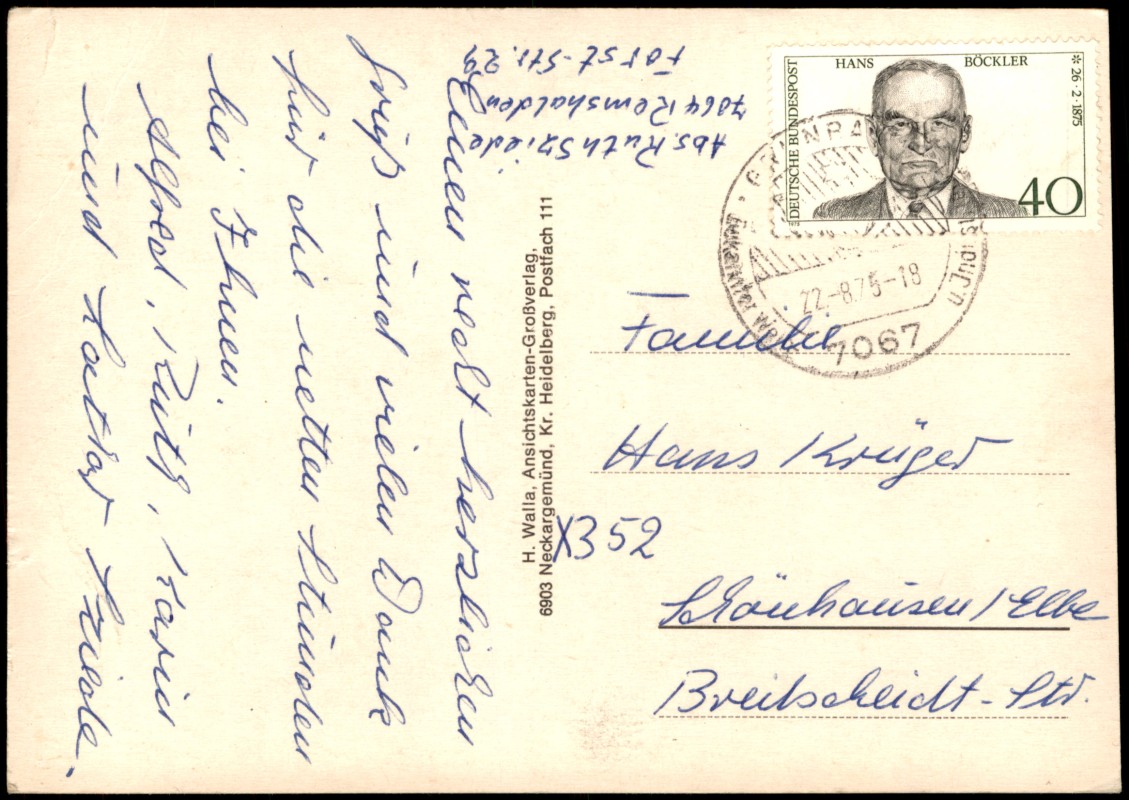 Abs. Ruth Sziede
7064 Remshalden
Forst-Str. 29
Einen recht herzlichen
Gruß und vielen Dank
für die netten Stunden
bei Ihnen.
Alfred, Ruth, Karin
und Lothar Sziede.
H. Walla, Ansichtskarten-Großverlag,
6903 Neckargemünd, Kr. Heidelberg, Postfach 111
DEUTSCHE BUNDESPOST
HANS BÖCKLER
* 26·2·1875
40
22.-8.75-18
7067
Familie
Hans Krüger
X352
Schönhausen/Elbe
Breitscheidt-Str.